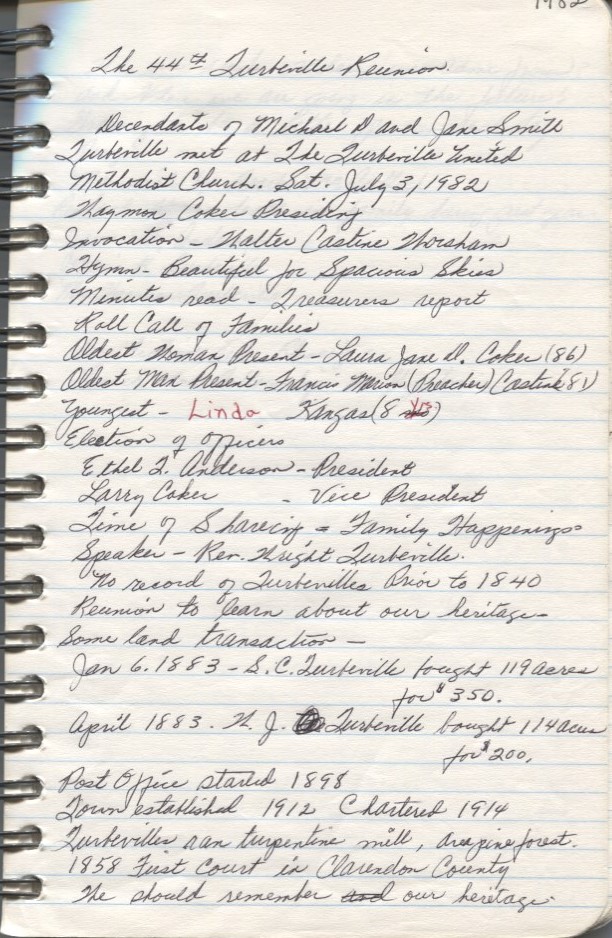 1982
The 44th Turbeville Reunion.
Decendants of Michael D and Jane Smith
Turbeville met at The Turbeville United
Methodist Church. Sat. July 3, 1982
Waymon Coker Presiding
Invocation - Walter Castine Worsham
Hymn - Beautiful for Spacious Skies
Minutes read - Treasurers report
Roll Call of Families
Oldest Woman Present - Laura Jane D. Coker (86)
Oldest Man Present - Francis Marion (Preacher) Castine (81)
Youngest - Linda Kangas (8 yrs)
Election of officers
Ethel T. Anderson - President
Larry Coker - Vice President
Time of Shareing = Family Happenings
Speaker - Rev. Wright Turbeville.
No record of Turbevilles Prior to 1840
Reunion to learn about our heritage -
Some land transaction -
Jan 6. 1883 - S. C. Turbeville bought 119 acres
for $350.
April 1883. W. J. Turbeville bought 114 acres
for $200.
Post Office started 1898
Town established 1912 Chartered 1914
Turbevilles ran turpentine mill, area pine forest.
1858 First Court in Clarendon County
We should remember and our heritage.